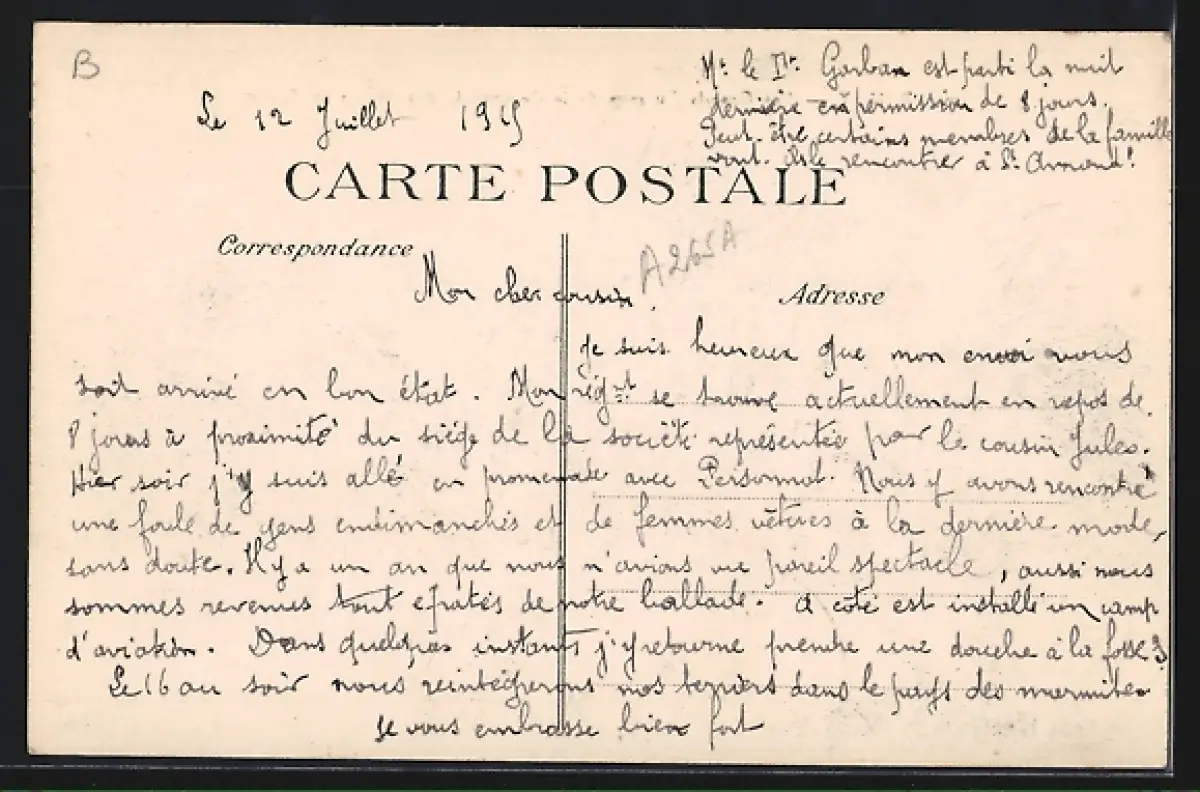 B
Mr le Dr Gorban est parti la nuit
dernière en permission de 8 jours.
Peut-être certains membres de la famille
vont-ils le rencontrer à St Amand!
Le 12 Juillet 1915
CARTE POSTALE
Correspondance
A265A
Adresse
Mon cher cousin,
Je suis heureux que mon envoi vous
soit arrivé en bon état. Mon régt se trouve actuellement en repos de
8 jours à proximité du siège de la société représentée par le cousin Jules.
Hier soir j'y suis allé en promenade avec Personnat. Nous y avons rencontré
une foule de gens endimanchés et de femmes vêtues à la dernière mode,
sans doute. Il y a un an que nous n'avions vu pareil spectacle, aussi nous
sommes revenus tout épatés de notre ballade. A côté est installé un camp
d'aviation. Dans quelques instants j'y retourne prendre une douche à la fosse 3
Le 16 au soir nous réintégrerons nos terriers dans le pays des marmites
Je vous embrasse bien fort